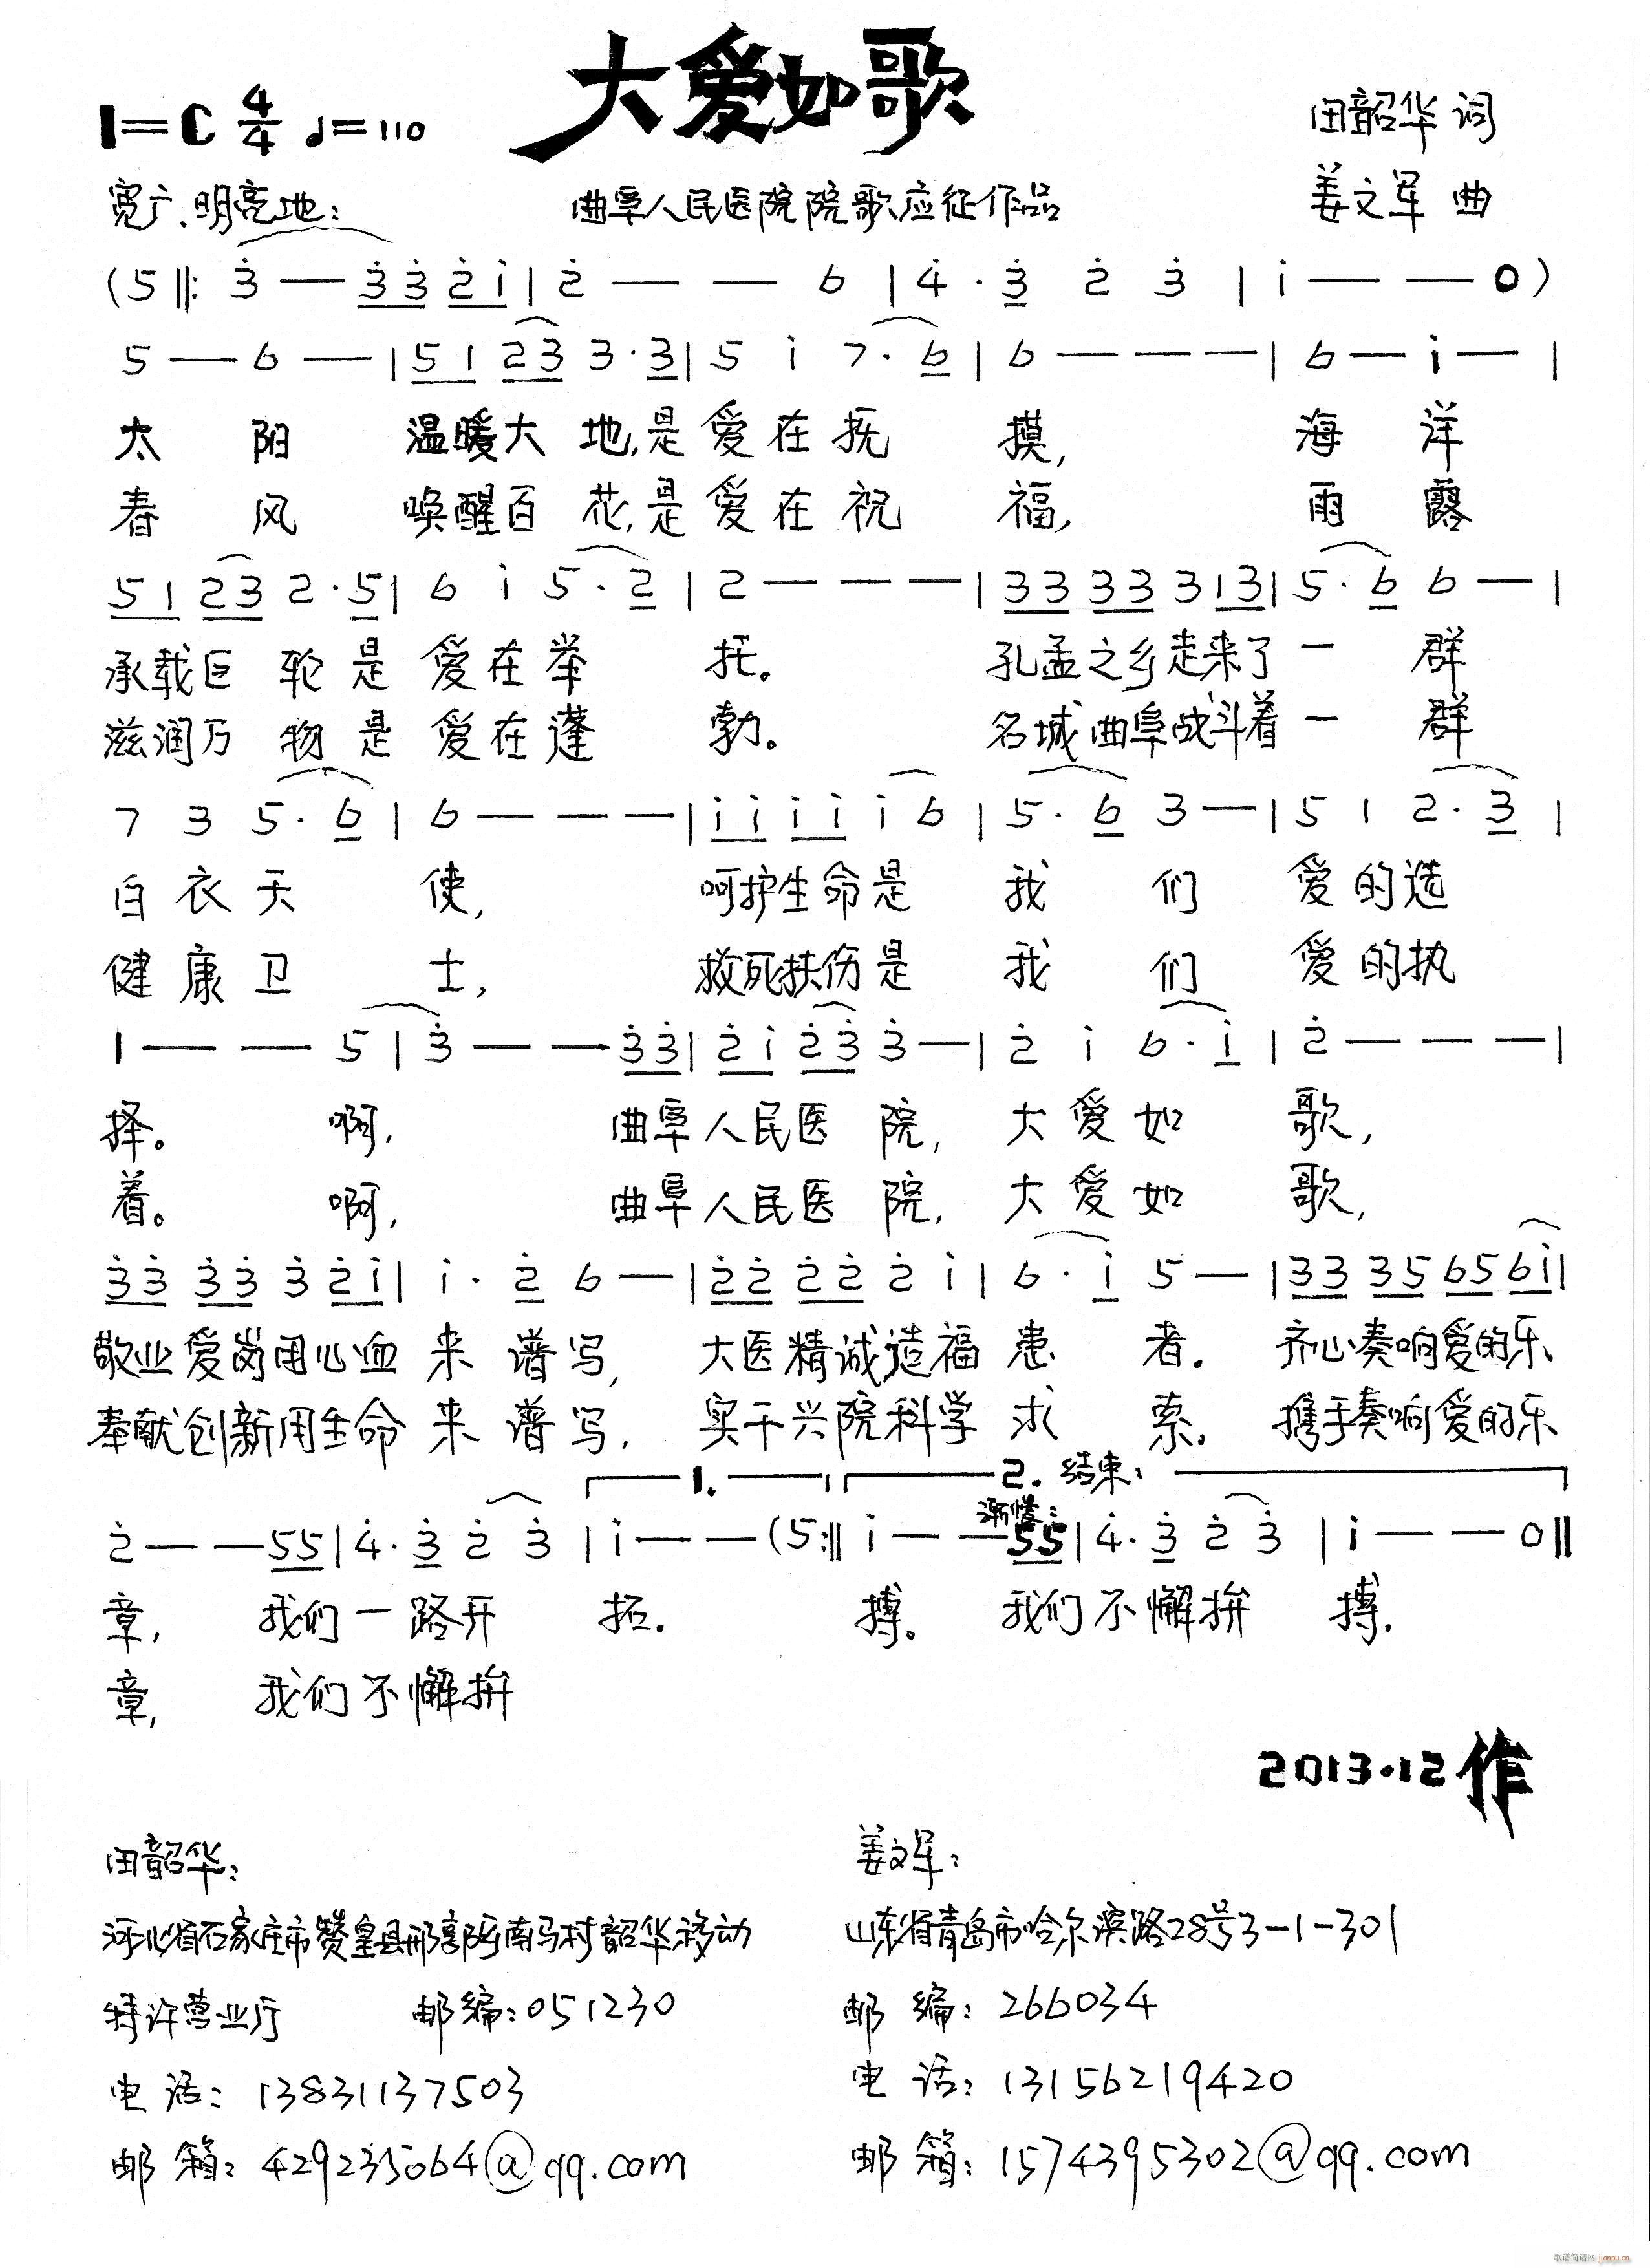 大爱如歌
1=C 4/4 ♩=110
田韶华 词
宽广、明亮地:
曲阜人民医院院歌应征作品
姜文军 曲
(5 ‖: 3̇ — 3̇ 3̇ 2̇ i | 2̇ — — 6 | 4̇ · 3̇ 2̇ 3̇ | i — — 0 )
5 — 6 — | 5 1 2 3 3 · 3 | 5 i 7 · 6 | 6 — — — | 6 — i — |
太 阳 温暖大 地,是 爱 在 抚 摸, 海 洋
春 风 唤醒百 花,是 爱 在 祝 福, 雨 露
5 1 2 3 2 · 5 | 6 i 5 · 2 | 2 — — — | 3 3 3 3 3 1 3 | 5 · 6 6 — |
承载巨 轮 是 爱 在 举 托。 孔孟之乡走来了 一 群
滋润万 物 是 爱 在 蓬 勃。 名城曲阜战斗着 一 群
7 3 5 · 6 | 6 — — — | i i i i i 6 | 5 · 6 3 — | 5 1 2 · 3 |
白 衣 天 使, 呵护生命是 我 们 爱 的 选
健 康 卫 士, 救死扶伤是 我 们 爱 的 执
1 — — 5 | 3̇ — — 3̇ 3̇ | 2̇ i 2̇ 3̇ 3̇ — | 2̇ i 6 · i | 2̇ — — — |
择。 啊, 曲阜人民医 院, 大 爱 如 歌,
着。 啊, 曲阜人民医 院, 大 爱 如 歌,
3̇ 3̇ 3̇ 3̇ 3̇ 2̇ i | i · 2̇ 6 — | 2̇ 2̇ 2̇ 2̇ 2̇ i | 6 · i 5 — | 3 3 3 5 6 5 6 i |
敬业爱岗用心血 来 谱 写, 大医精诚造福 患 者. 齐心奏响爱的乐
奉献创新用生命 来 谱 写, 实干兴院科学 求 索. 携手奏响爱的乐
1. 2. 结束:
渐慢:
2̇ — — 5 5 | 4̇ · 3̇ 2̇ 3̇ | i — — (5 :‖ i — — 5 5 | 4̇ · 3̇ 2̇ 3̇ | i — — 0 ‖
章, 我们一路开 拓. 搏。 我们不懈拚 搏.
章, 我们不懈拚
2013.12作
田韶华:
姜文军:
河北省石家庄市赞皇县邢郭乡南马村韶华移动
山东省青岛市哈尔滨路28号3-1-301
特许营业厅 邮编:051230
邮编: 266034
电话: 13831137503
电话: 13156219420
邮箱: 429235064@qq.com
邮箱: 1574395302@qq.com
歌谱简谱网 jianpu.cn